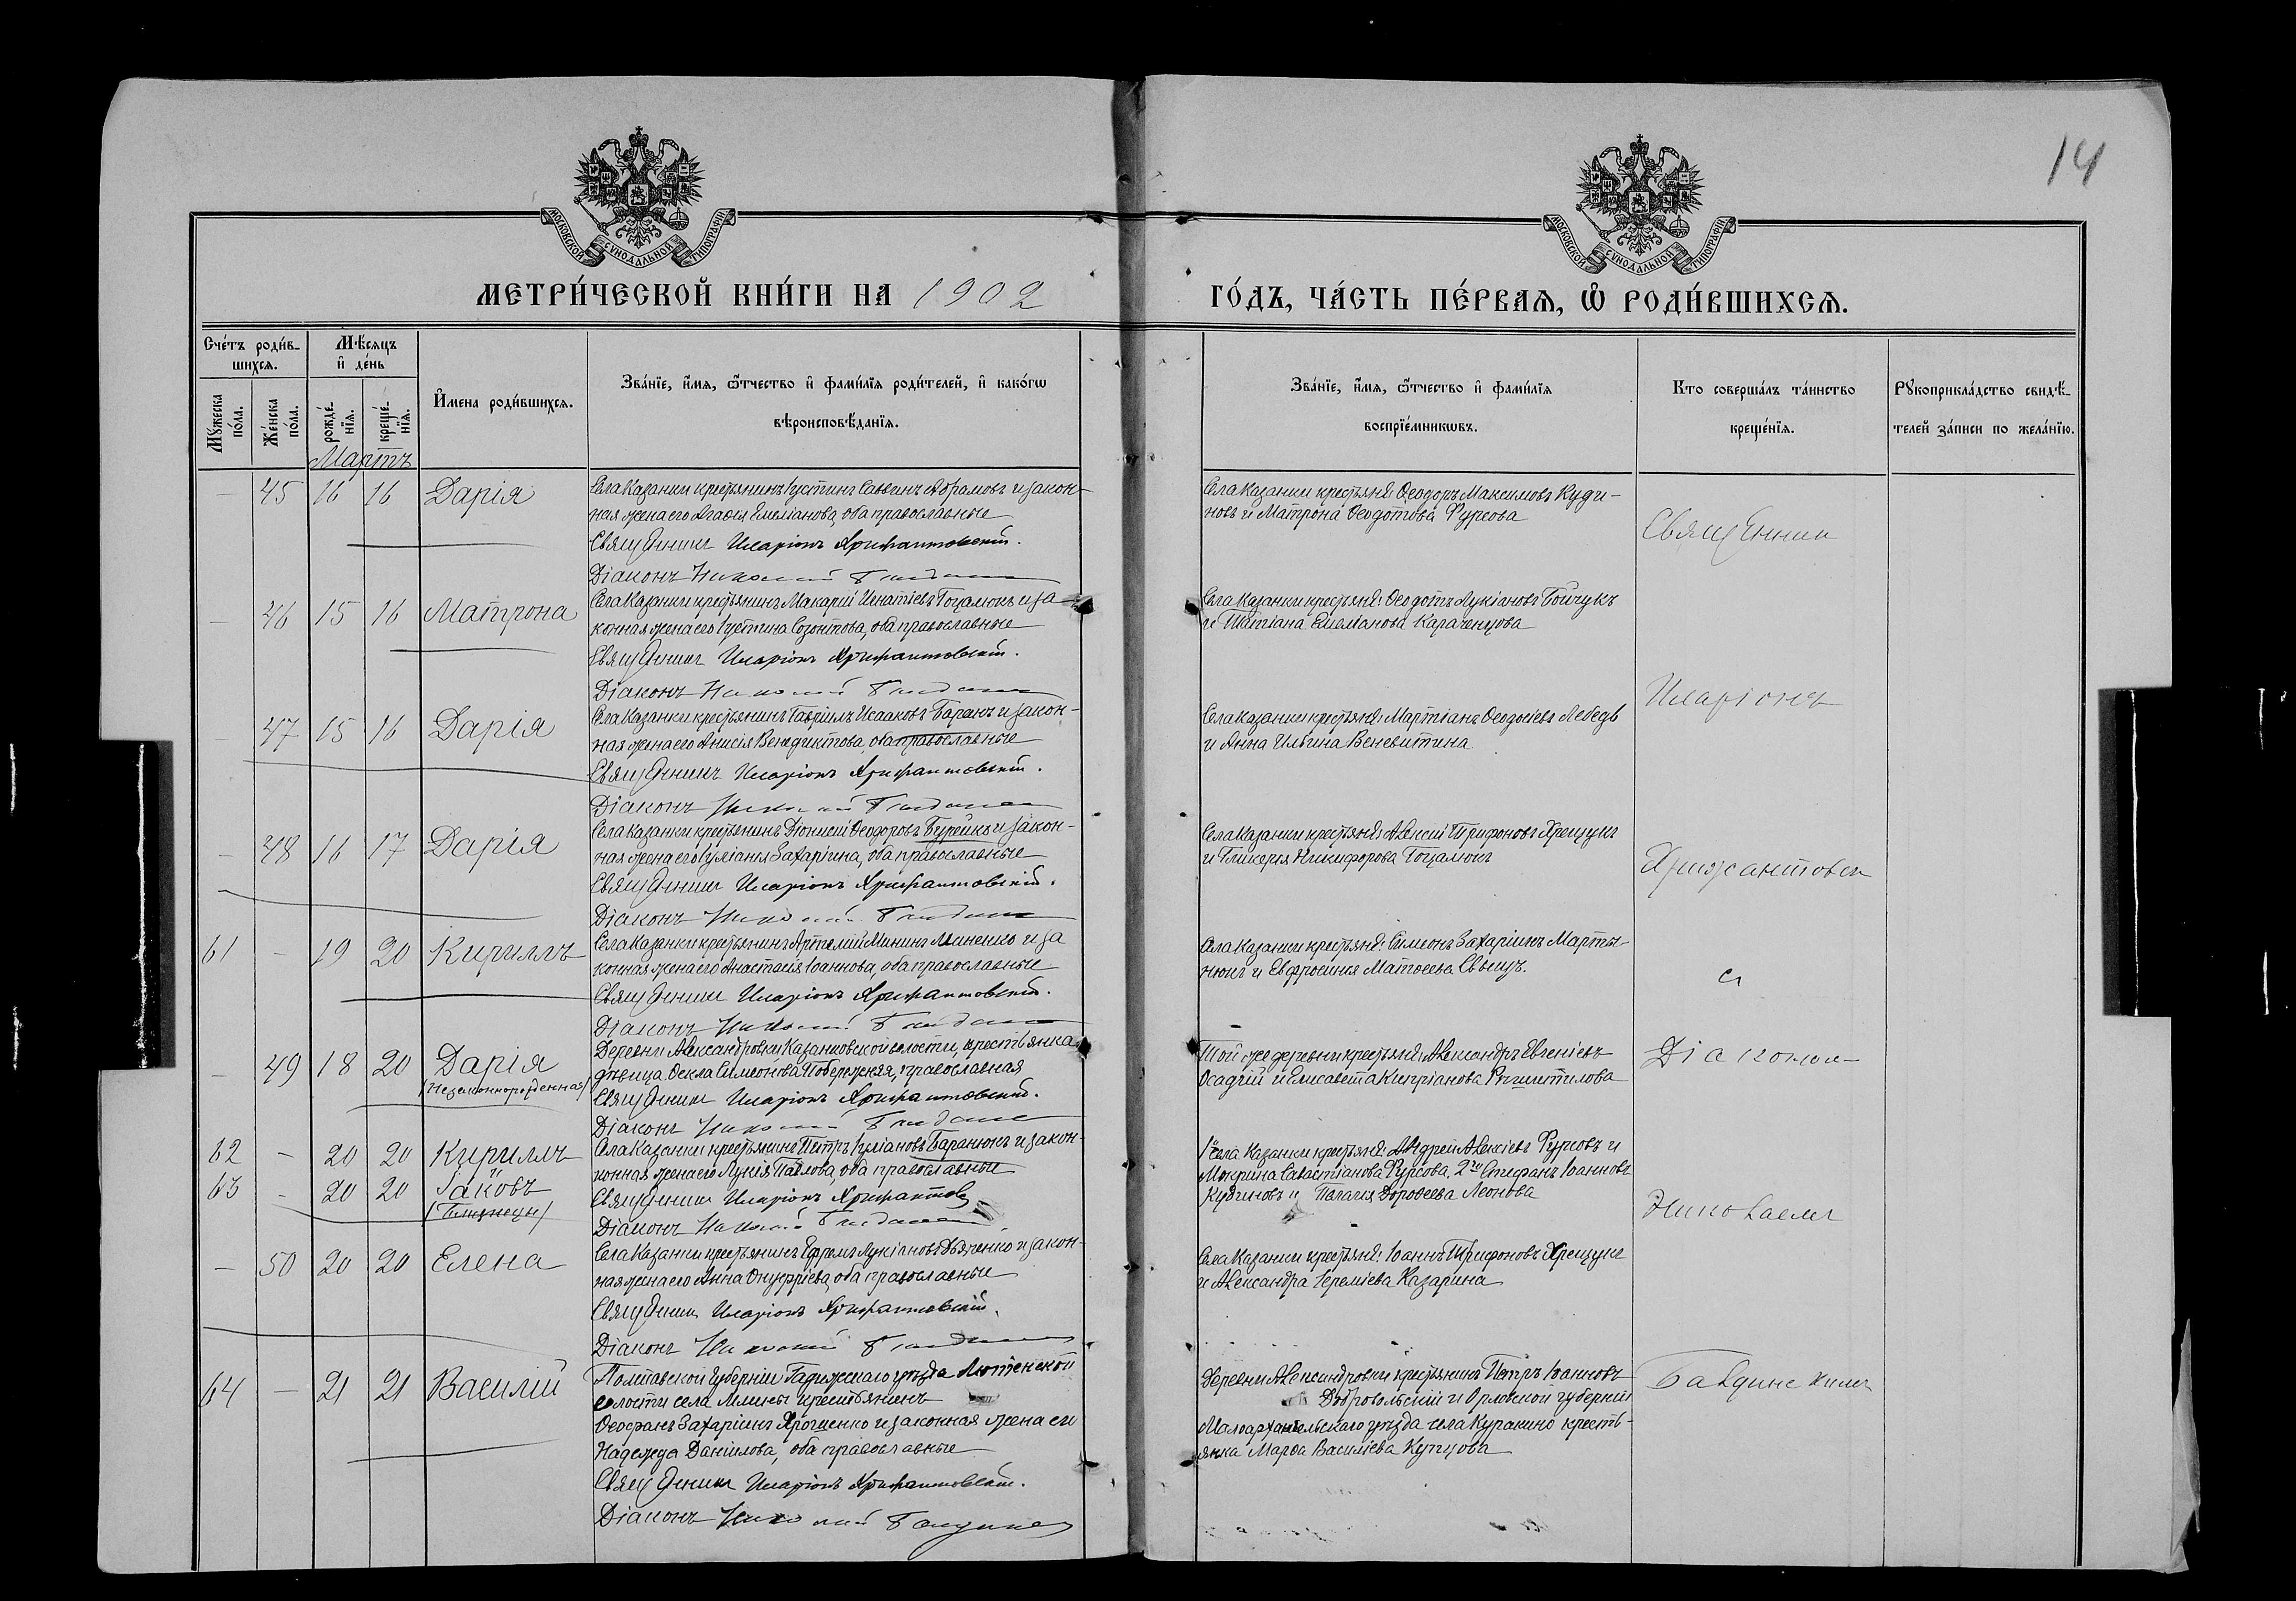 14
МОСКОВСКОЙ СѴНОДАЛЬНОЙ ТИПОГРАФІИ
МОСКОВСКОЙ СѴНОДАЛЬНОЙ ТИПОГРАФІИ
МЕТРИ́ЧЕСКОЙ КНИ́ГИ НА 1902
ГО́ДЪ, ЧА́СТЬ ПЕ́РВАѦ, Ѡ҆ РОДИ́ВШИХСѦ.
Сче́тъ роди́в-
шихсѧ.
Мѣ́сѧцъ
и҆ де́нь
Мꙋ́жеска
по́ла.
Же́нска
по́ла.
рожде́-
нїѧ.
креще́-
нїѧ.
И҆мена роди́вшихсѧ.
Зва́нїе, и҆́мѧ, ѻ҆́тчество и҆ фами́лїѧ роди́телей, и҆ како́гѡ
вѣроисповѣ́данїѧ.
Зва́нїе, и҆́мѧ, ѻ҆́тчество и҆ фами́лїѧ
воспрїе́мникѡвъ.
Кто соверша́лъ та́инство
креще́нїѧ.
Рꙋкоприкла́дство свидѣ́-
телей за́писи по жела́нїю.
Мартъ
— 45 16 16 Дарія
Села Казанки крестьянинъ Іустинъ Саввинъ Абрамовъ и закон-
ная жена его Агаѳія Емеліанова, оба православные
Священникъ Иларіонъ Хрисантовскій.
Діаконъ Николай
Села Казанки крестьяне: Ѳеодоръ Максимовъ Куди-
новъ и Матрона Ѳеодотова Фурсова
Священник
— 46 15 16 Матрона
Села Казанки крестьянинъ Макарій Игнатіевъ Гоцамокъ и за-
конная жена его Іустина Созонтова, оба православные
Священникъ Иларіонъ Хрисантовскій.
Діаконъ Николай
Села Казанки крестьяне: Ѳеодотъ Лукіановъ Бойчукъ
и Татіана Емеліанова Караченцова
Иларіонъ
— 47 15 16 Дарія
Села Казанки крестьянинъ Гавріилъ Исааковъ Баранъ и закон-
ная жена его Анисія Венедиктова, оба православные
Священникъ Иларіонъ Хрисантовскій.
Діаконъ Николай
Села Казанки крестьяне: Мартіанъ Ѳеодосіевъ Лебедь
и Анна Ильина Веневитина
— 48 16 17 Дарія
Села Казанки крестьянинъ Діонисій Ѳеодоровъ Бурейко и закон-
ная жена его Іуліанія Захаріина, оба православные
Священникъ Иларіонъ Хрисантовскій.
Діаконъ Николай
Села Казанки крестьяне: Алексій Трифоновъ Хрещукъ
и Гликерія Никифорова Гоцамокъ
Хрисантовск
61 — 19 20 Кириллъ
Села Казанки крестьянинъ Артемій Мининъ Миненко и за
конная жена его Анастасія Іоаннова, оба православные
Священникъ Иларіонъ Хрисантовскій.
Діаконъ Николай
Села Казанки крестьяне: Симеонъ Захаріинъ Марты-
нюкъ и Евфросинія Матѳеева Свѣнцъ.
съ
— 49 18 20 Дарія
(Незаконнорожденная)
Деревни Александровки Казанковской волости, крестьянка
дѣвица Ѳекла Симеонова Побережняя, православная
Священникъ Иларіонъ Хрисантовскій.
Діаконъ Николай
Той же деревни крестьяне: Александръ Евгеніевъ
Осадчій и Елисавета Кипріанова
Діакомъ
62 — 20 20 Кириллъ
63 — 20 20 Іаковъ
(Близнецы)
Села Казанки крестьянинъ Петръ Іуліановъ Баранюкъ и закон-
конная жена его Лукія Павлова, оба православные
Священникъ Иларіонъ Хрисантов
Діаконъ Николай
1го Села Казанки крестьяне: Андрей Алексіевъ Фурсовъ и
Мокрина Савастіанова Фурсова. 2го Стефанъ Іоанновъ
Кудиновъ и Пелагія Дороѳеева Леонова
Николаемъ
— 50 20 20 Елена
Села Казанки крестьянинъ Ефремъ Лукіановъ Дьяченко и закон-
ная жена его Анна Онуфріева, оба православные
Священникъ Иларіонъ Хрисантовскій.
Діаконъ Николай
Села Казанки крестьяне: Іоаннъ Трифоновъ Хрещукъ
и Александра Іереміева Казарина
64 — 21 21 Василій
Полтавской губерніи Гадяжскаго уѣзда Лютенской
волости села крестьянинъ
Ѳеофанъ Захаріинъ Ярошенко и законная жена его
Надежда Даніилова, оба православные
Священникъ Иларіонъ Хрисантовскій.
Діаконъ Николай
Деревни Александровки крестьянинъ Петръ Іоанновъ
Добровольскій и Орловской губерніи
Малоархангельскаго уѣзда села Куракино кресть-
янка Марѳа Василіева Купцова